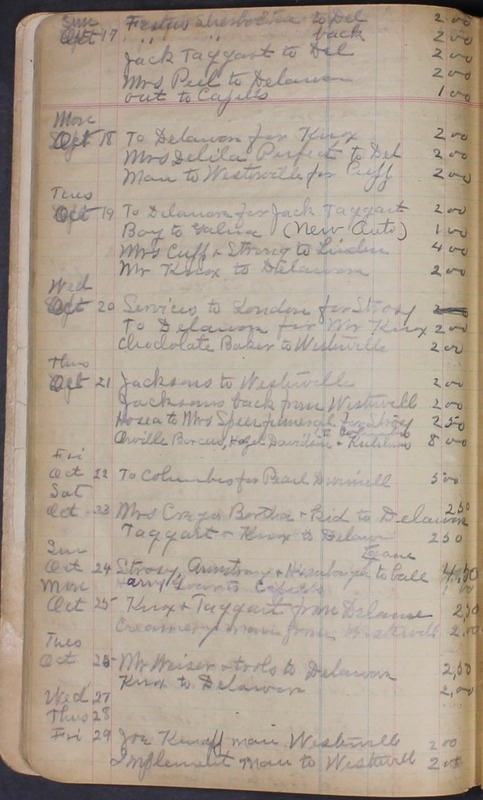 Sun
Oct 17 to Del 2 00
" " back 2 00
Jack Taggart to Del 2 00
Mrs Peel to Delawan 2 00
out to Capells 1 00
Mon
Oct 18 To Delawan for Knox 2 00
Mrs Delila Perfect to Del 2 00
Man to Westerville for Cuff 2 00
Tues
Oct 19 To Delawan for Jack Taggart 2 00
Boy to Galena (New Auto) 1 00
Mrs Cuff + Strong to Linden 4 00
Mr Knox to Delawan 2 00
Wed
Oct 20 Services to London for Strosy
To Delawan for Mr Knox 2 00
Chocolate Baker to Westerville 2 00
Thus
Oct 21 Jacksons to Westerville 2 00
Jacksons back from Westervill 2 00
Hosea to Mrs Speer funeral for Strosy 2 50
to Columbus
Orville 8 00
Fri
Oct 22 To Columbus for Pearl 5 00
Sat
Oct 23 Mrs Bertha + Bid to Delawan 2 50
Taggart + Knox to Delawn 2 50
Sun
Oct 24 Strosy Armstrong + to ball Game 4,50
Mon Harry to Capells
Oct 25 Knox + Taggart from Delawn 2,50
Creamery man from Westervill 2,00
Tues
Oct 26 Mr Wiser + tools to Delawan 2,50
Knox to Delawan 2,00
Wed 27
Thus 28
Fri 29 Joe man Westervill 2 00
Implement man to Westervill 2 00